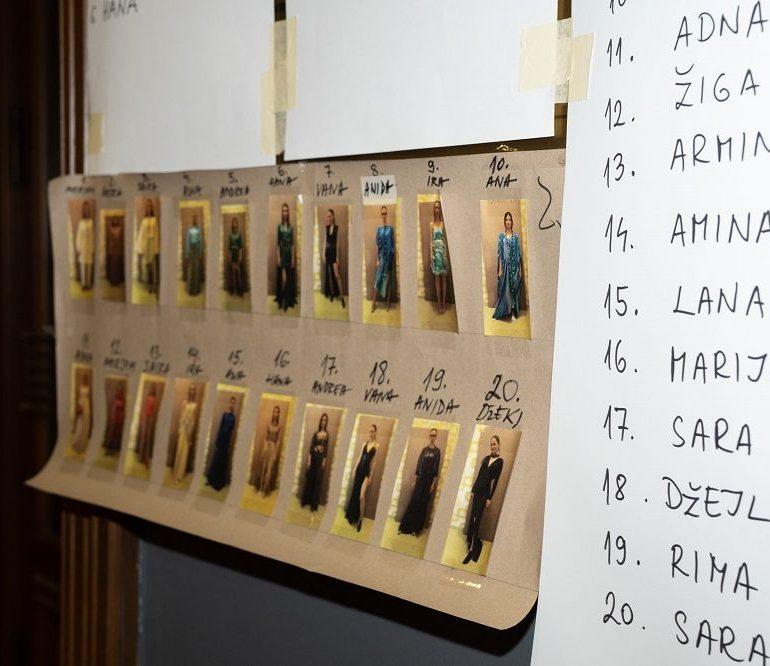 6 HANA
5.
ANDREA
6.
HANA
7.
VANA
8.
ANIDA
9.
IRA
10.
ANA
12.
MERJEM
13.
14.
IRA
15.
ANA
16.
HANA
17.
ANDREA
18.
VANA
19.
ANIDA
20.
DŽEKJ
11. ADNA
12. ŽIGA
13. ARMIN
14. AMINA
15. LANA
16. MARIJ
17. SARA
18. DŽEJL
19. RIMA
20. SARA